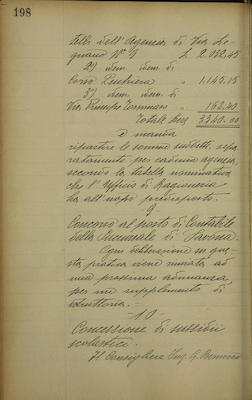 198
dell'Agenzia di Via
N° 9 L. 2.052.45
2) idem idem di
Corso " 1.145.15
3) idem idem di
Via Principe Tommaso " 152.40
Totale Lire 3340.00
e manda
ripartire le somme suddette, sepa
ratamente per caduna agenzia,
secondo la tabella nominativa
che l'Ufficio di Ragioneria
ha all'uopo predisposto.
9
Concorso al posto di Contabile
della Succursale di Savona.
Ogni deliberazione su que
sta pratica viene rinviata ad
una prossima adunanza
per un supplemento di
istruttoria. -
- 10 -
Concessione di sussidii
scolastici.
Il Consigliere Ing. G.